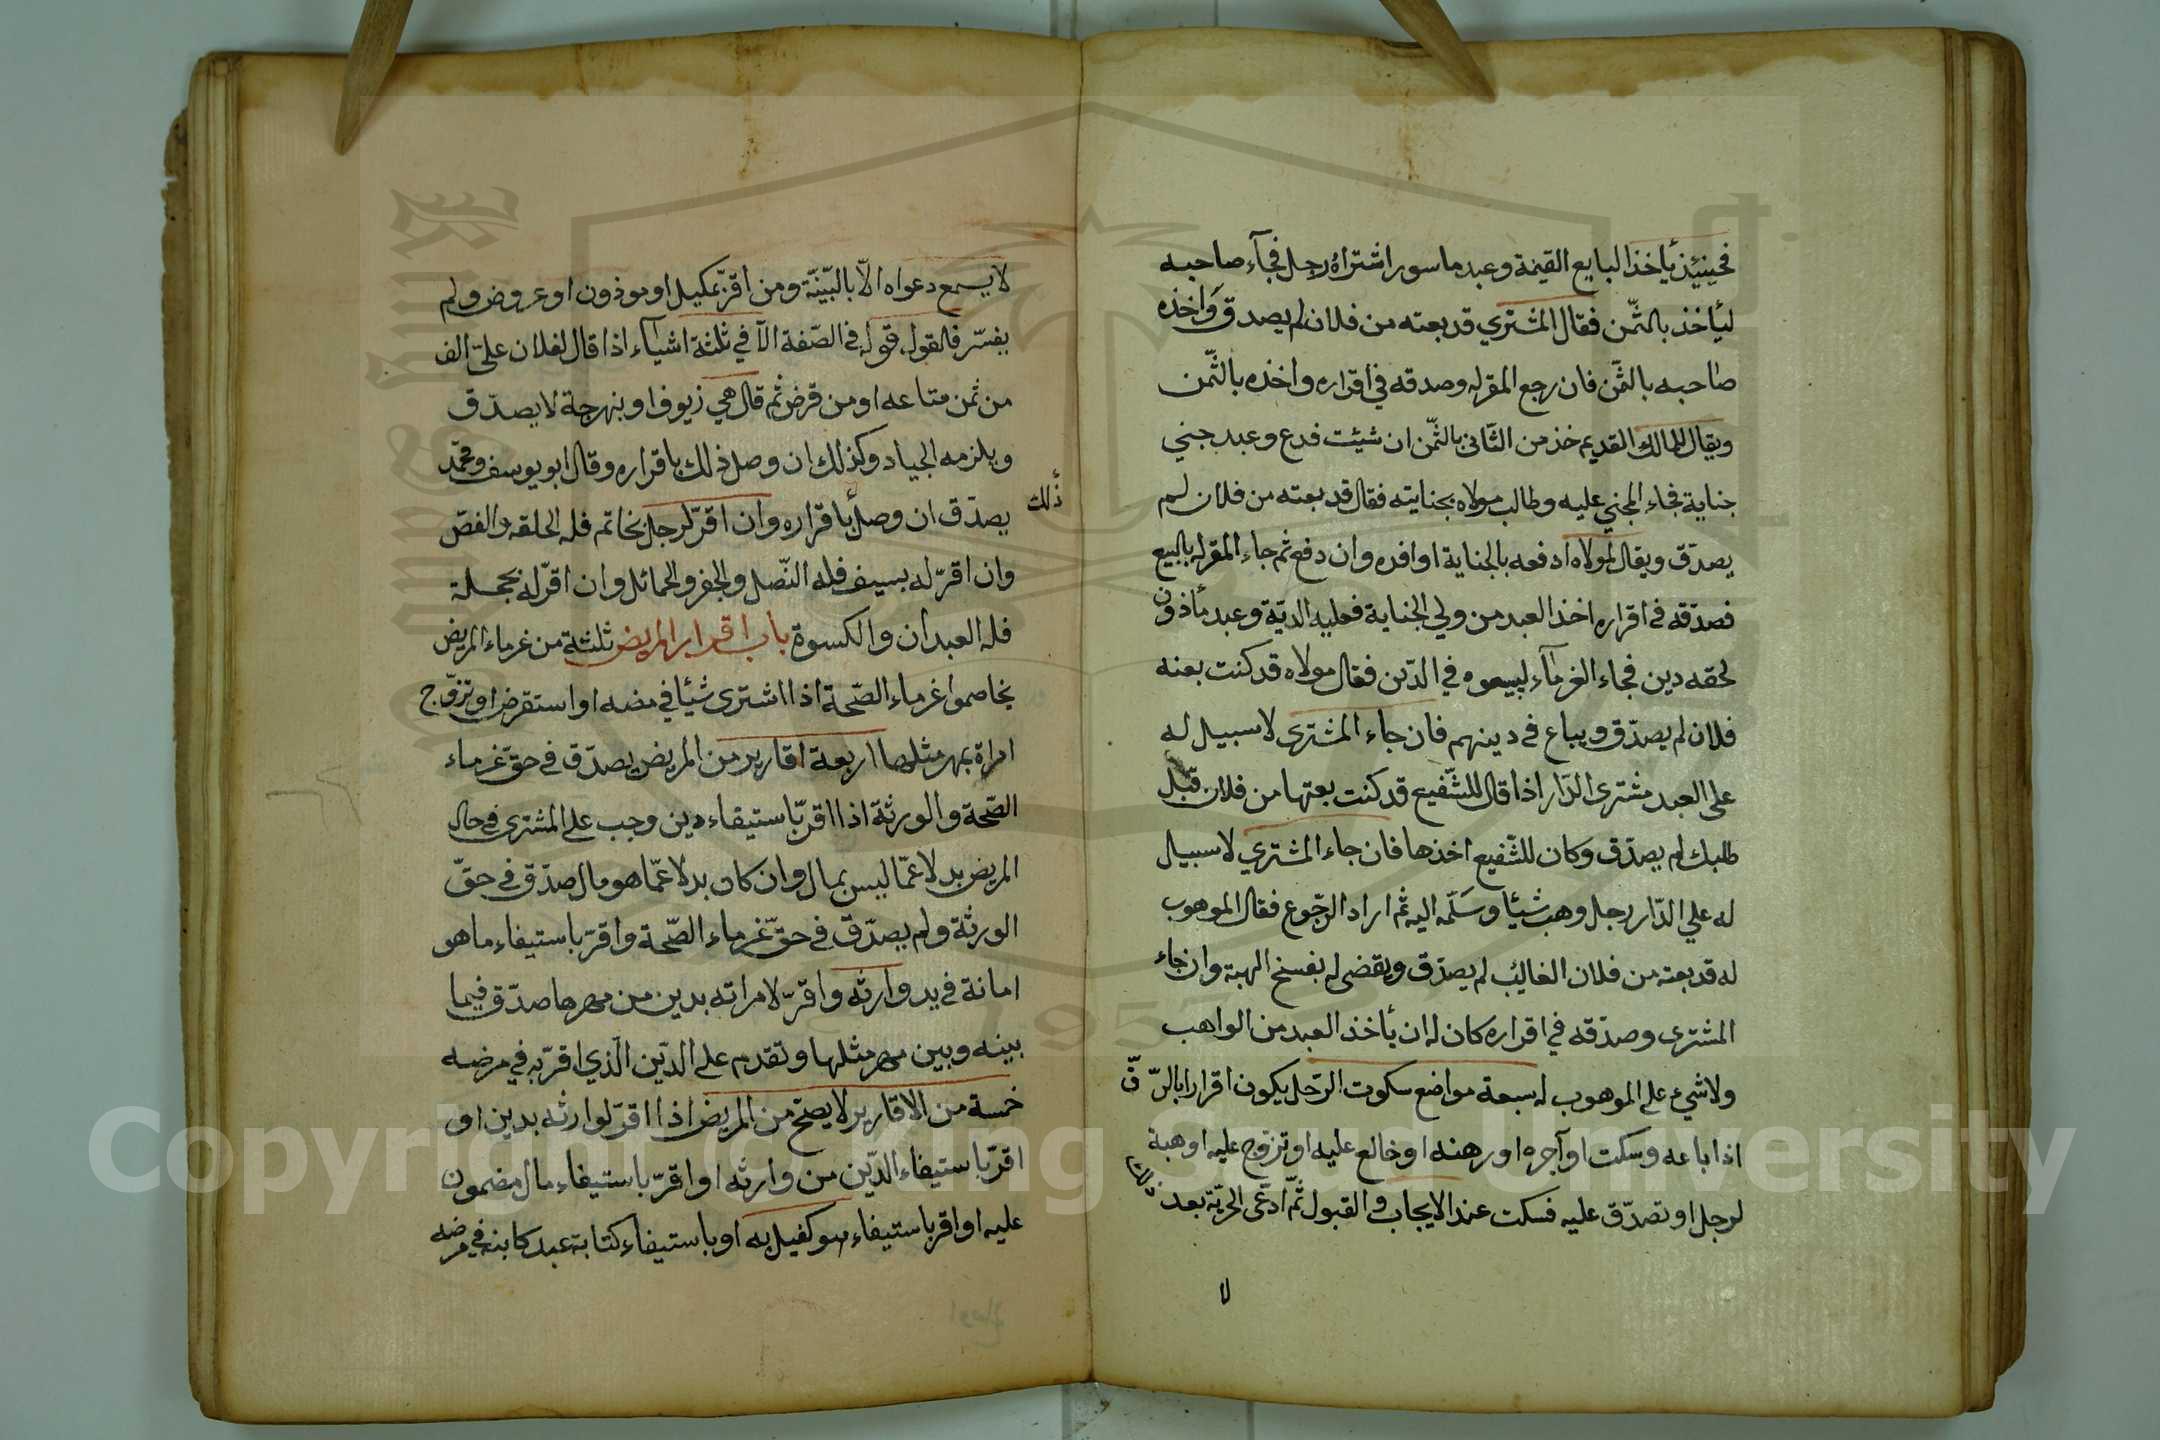 فحينئذ يأخذ البايع القيمة وعبد ماسور اشتراه رجل فجآء صاحبه
ليأخذ بالثمّن فقال المشتري قد بعته من فلان لم يصدق واخذه
صاحبه بالثمّن فان رجع المقر له وصدقه في اقراره واخذه بالثّمن
ويقال للمالك القديم خذ من الثّاني بالثّمن ان شيئت فدع وعبد جني
جناية فجاء المجني عليه وطالب مولاه بجنايته فقال قد بعته من فلان لم
يصدّق ويقال لمولاه ادفعه بالجناية او افده وان دفع ثم جاء المقر له بالبيع
فصدّقه في اقراره اخذ العبد من ولي الجناية فعليه الديّة وعبد مأذون
لحقه دين فجاء الغرمآء ليبيعوه في الدّين فقال مولاه قد كنت بعته
فلان لم يصدّق ويباع في دينهم فان جاء المشترى لا سبيل له
على العبد مشترى الدّار اذا قال للشّفيع قد كنت بعتها من فلان قبل
طلبك لم يصدّق وكان للشّفيع اخذها فان جاء المشتري لا سبيل
له علي الدّار رجل وهب شيئا وسلّمه اليه ثم اراد الرجّوع فقال الموهوب
له قد بعته من فلان الغائب لم يصدّق ويقضى له بفسخ الهبة وان جاء
المشترى وصدّقه في اقراره كان له ان يأخذ العبد من الواهب
ولا شيء على الموهوب له سبعة مواضع سكوت الرّجل يكون اقرارا بالرّقّ
اذا باعه وسكت او آجره او رهنه او خالع عليه او تزوج عليه او هبة
لرجل او تصدّق عليه فسكت عند الايجاب والقبول ثمّ ادّعى الحريّة بعد ذلك
لا
لا يسمع دعواه الاّ بالبّينّة ومن اقرّ بمكيل او موذون او عروض ولم
يفسّر فالقول قوله في الصّفة الاّ في ثلثة اشيآء اذا قال لفلان علىّ الف
من ثمن متاعه او من قرض ثم قال هي زيوف او بنهرجة لا يصدّق
ويلزمه الجياد وكذلك ان وصل ذلك باقراره وقال ابو يوسف ومحمّد
يصدّق ان وصل باقراره وان اقرّ لرجل بخاتم فله الحلقه والفصّ
ذلك
وان اقرّ له بسيف فله النّصل والجفر والحمائل وان اقرّ له بحجلة
فله العبدان والكسوة باب اقرار المريض ثلثة من غرماء المريض
يخاصموا غرماء الصّحة اذا اشترى شيئا في مضه او استقرض او تزوّج
امراة بمهر مثلها اربعة اقارير من المريض يصدّق في حقّ غرماء
الصّحة والورثة اذا اقرّ باستيفاء دين وجب على المشترى في حال
المريض بدلا عمّا ليس بمال وان كان بدلا عمّا هو مال صدّق في حقّ
الورثة ولم يصدّق في حقّ غرماء الصّحة واقرّ باستيفاء ما هو
امانة في يد وارثه واقرّ لامراته بدين من مهرها صدّق فيما
بينه وبين مهر مثلها وتقدم على الدّين الّذي اقرّ به في مرضه
خمسة من الاقارير لا يصحّ من المريض اذا اقرّ لوارثه بدين او
اقرّ باستيفاء الدّين من وارثه او اقرّ باستيفاء مال مضمون
عليه او اقر باستيفاء هو كفيل به او باستيفاء كتابة عبد كاتبه في مرضه
Copyright © King Saud University